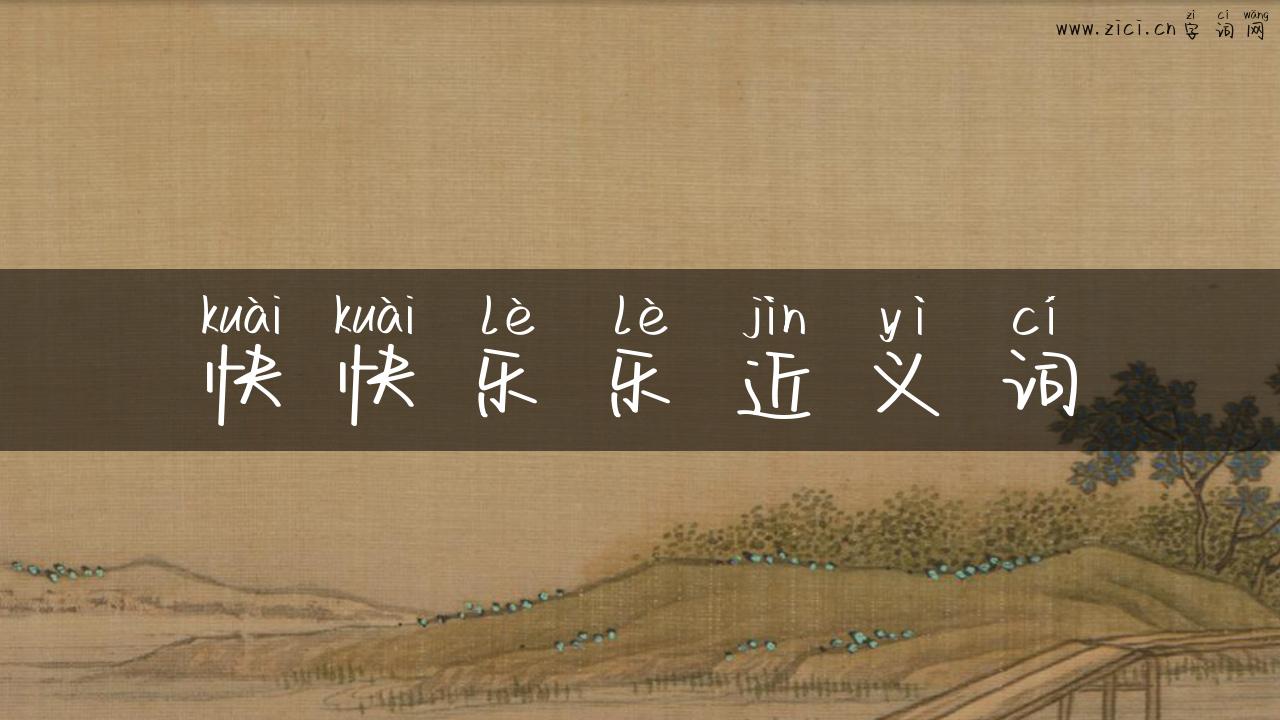 zì cí wǎng
www.zici.cn字词网
kuài kuài lè lè jìn yì cí
快快乐乐近义词